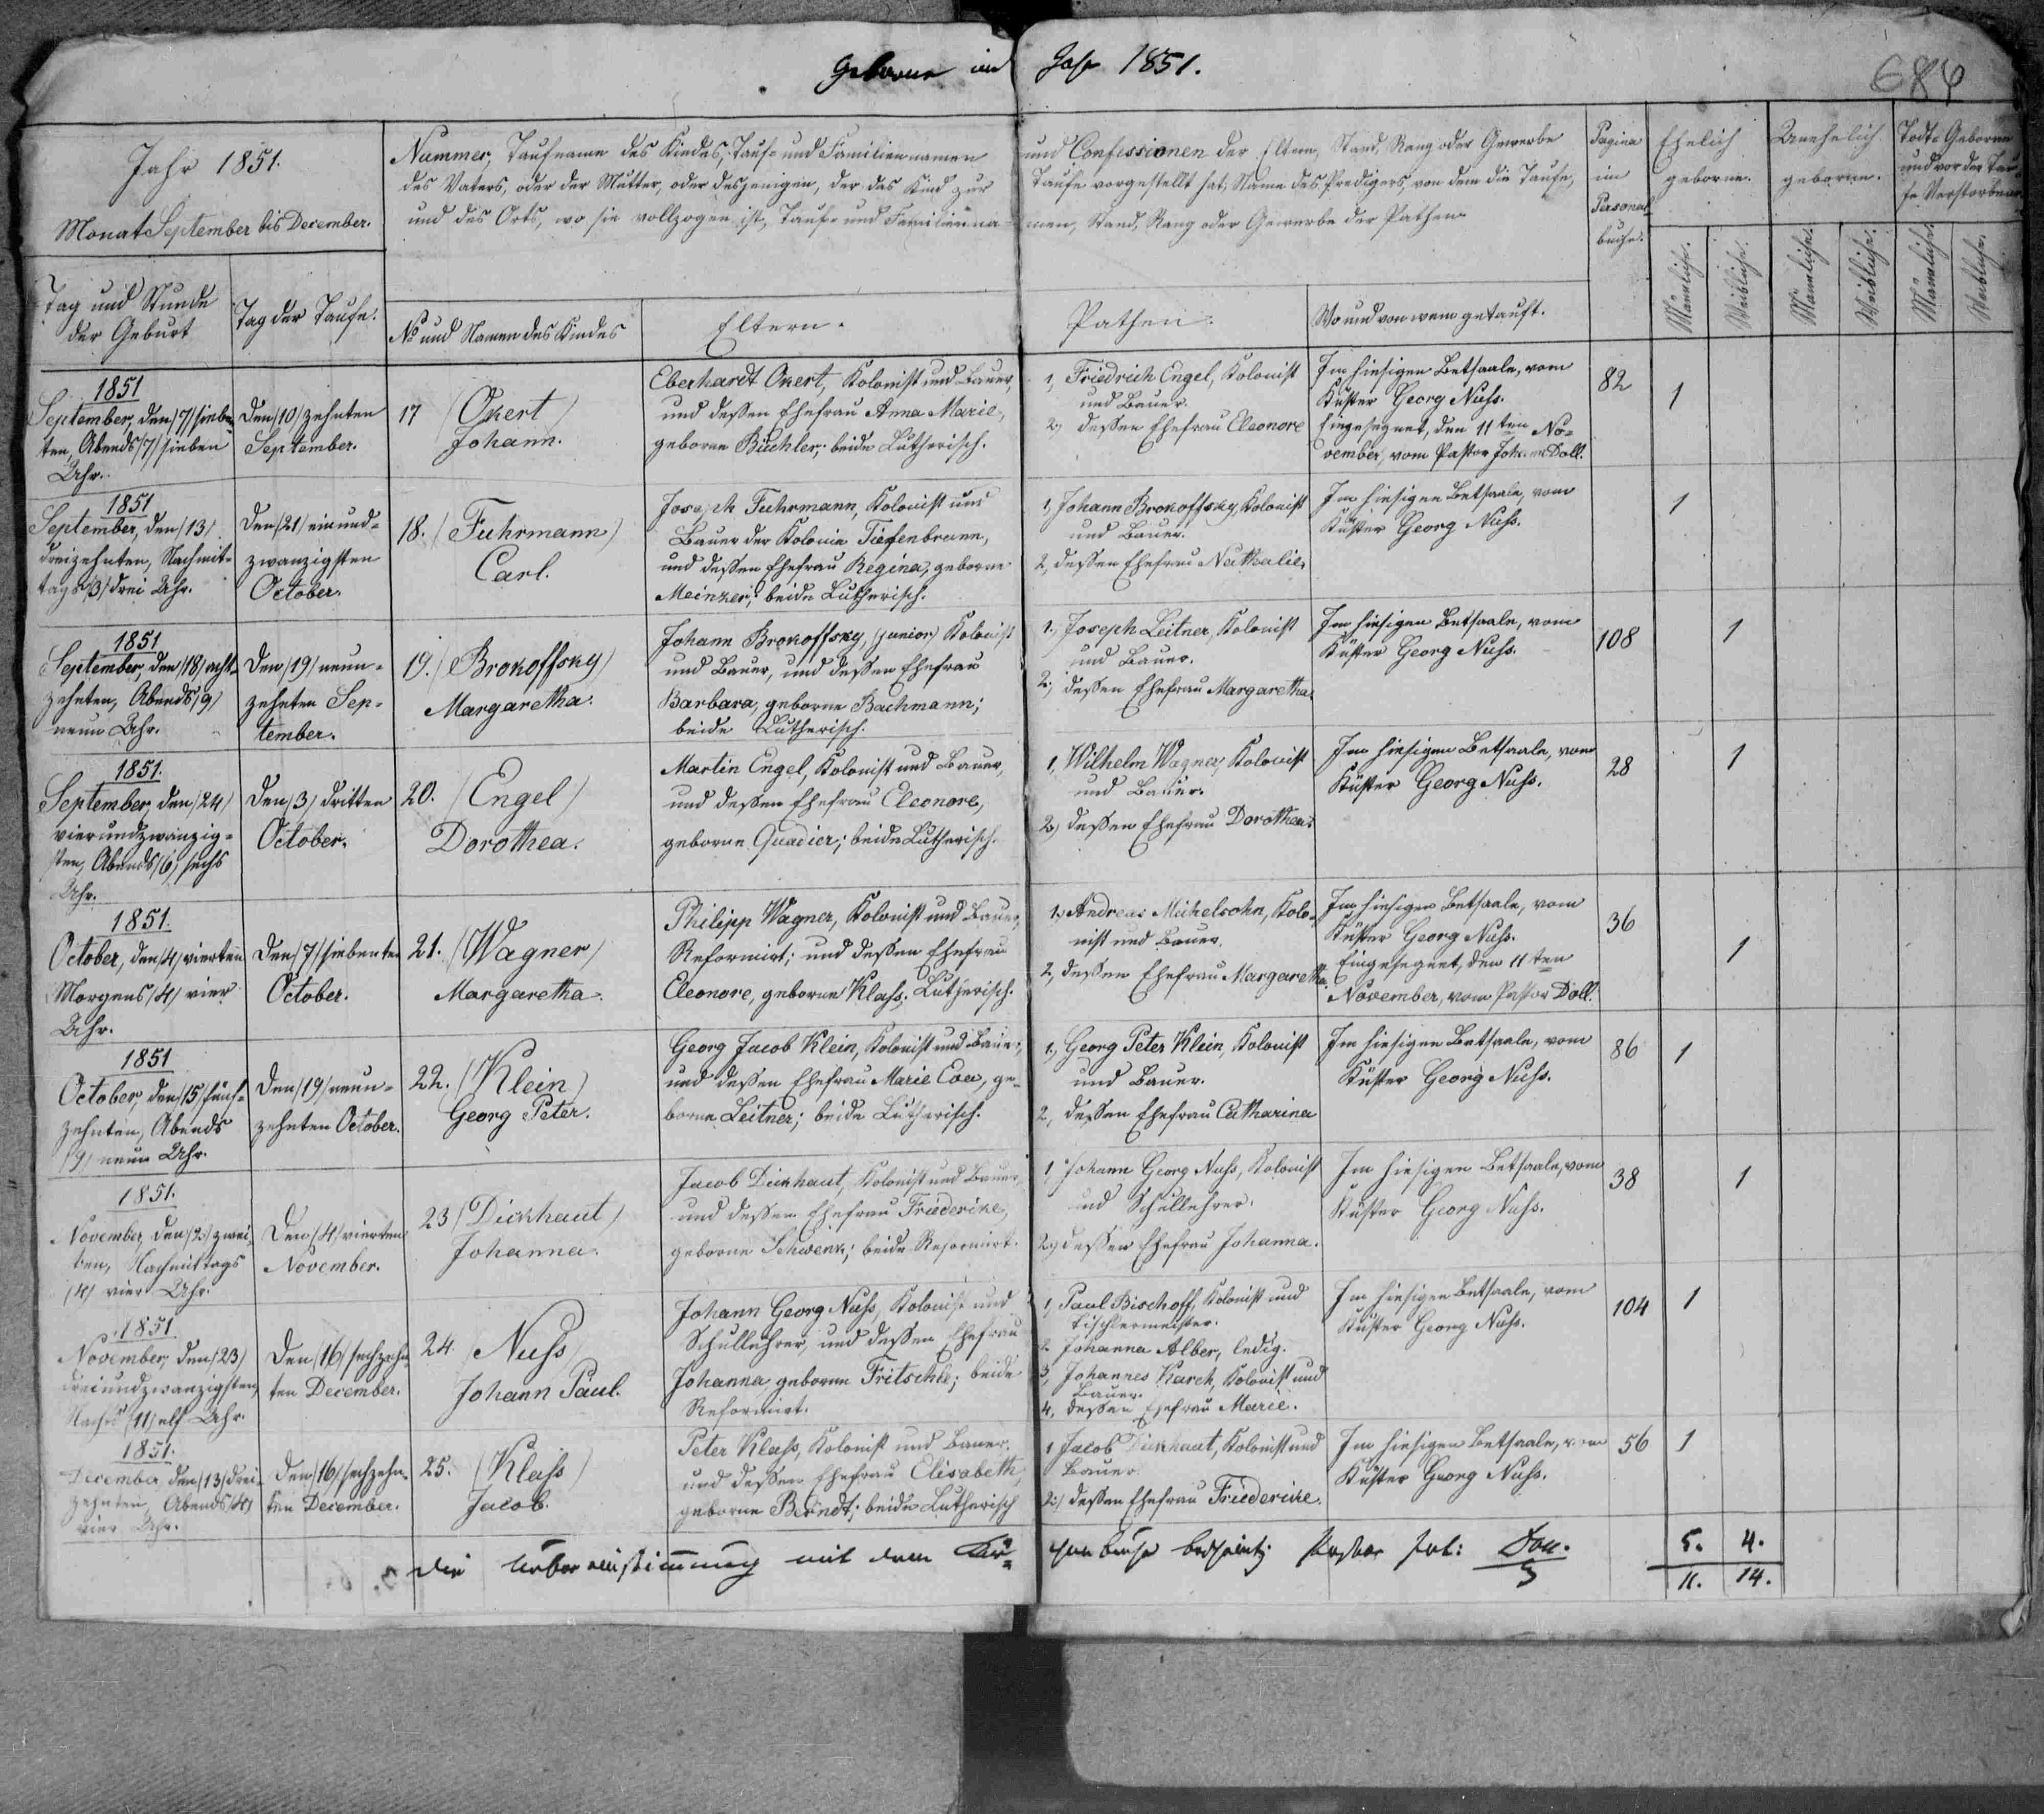 Geborne im Jahr 1851.
686
Jahr 1851.
Monat September bis December.
Nummer, Taufname des Kindes, Tauf- und Familiennamen und Confessionen der Eltern, Stand, Rang oder Gewerbe
des Vaters, oder der Mutter, oder desjenigen, der das Kind zur Taufe vorgestellt hat, Name des Predigers, von dem die Taufe,
und des Orts, wo sie vollzogen ist, Tauf- und Familienna-men, Stand, Rang oder Gewerbe der Pathen.
Pagina
im
Personal
buche.
Ehelich
geborne.
Unehelich
geborne.
Todt-Geborne
und vor der Tau-
fe Verstorbene
Männliche.
Weibliche.
Männliche.
Weibliche.
Männliche.
Weibliche.
Tag und Stunde
der Geburt
Tag der Taufe.
No und Namen des Kindes
Eltern.
Pathen.
Wo und von wem getauft.
1851
September, den /7/ sieben-
ten, Abends /7/ sieben
Uhr.
Den /10/ zehnten
September.
17 /Okert/
Johann.
Eberhardt Okert, Kolonist und Bauer,
und dessen Ehefrau Anna Marie,
geborne Büchler; beide Lutherisch.
1, Friedrich Engel, Kolonist
und Bauer.
2, dessen Ehefrau Eleonore
Im hiesigen Betsaale, vom
Küster Georg Nuss.
Eingesegnet, den 11ten No-
vember, vom Pastor Johann Doll.
82
1
1851
September, den /13/
dreizehnten, Nachmit-
tags /3/ drei Uhr.
Den /21/ einund-
zwanzigsten
October.
18. /Fuhrmann/
Carl.
Joseph Fuhrmann, Kolonist und
Bauer der Kolonie Tiefenbrunn,
und dessen Ehefrau Regina, geborne
Meinzer; beide Lutherisch.
1, Johann Brokoffsky, Kolonist
und Bauer.
2, dessen Ehefrau Nathalie.
Im hiesigen Betsaale, vom
Küster Georg Nuss.
1
1851
September, den /18/ acht-
zehnten, Abends /9/
neun Uhr.
Den /19/ neun-
zehnten Sep-
tember.
19. /Brokoffsky/
Margaretha.
Johann Brokoffsky, (junior) Kolonist
und Bauer, und dessen Ehefrau
Barbara, geborne Bachmann;
beide Lutherisch.
1., Joseph Leitner, Kolonist
und Bauer.
2., dessen Ehefrau Margaretha.
Im hiesigen Betsaale, vom
Küster Georg Nuss.
108
1
1851.
September, den /24/
vierundzwanzig-
sten, Abends /6/ sechs
Uhr.
Den /3/ dritten
October.
20. /Engel/
Dorothea.
Martin Engel, Kolonist und Bauer,
und dessen Ehefrau Eleonore,
geborne Quadier; beide Lutherisch.
1, Wilhelm Wagner, Kolonist
und Bauer.
2, dessen Ehefrau Dorothea.
Im hiesigen Betsaale, vom
Küster Georg Nuss.
28
1
1851.
October, den /4/ vierten
Morgens /4/ vier
Uhr.
Den /7/ siebenten
October.
21. /Wagner/
Margaretha.
Philipp Wagner, Kolonist und Bauer,
Reformirt; und dessen Ehefrau
Eleonore, geborne Klass; Lutherisch.
1., Andreas Michelsohn, Kolo-
nist und Bauer.
2, dessen Ehefrau Margaretha.
Im hiesigen Betsaale, vom
Küster Georg Nuss.
Eingesegnet, den 11ten
November, vom Pastor Doll.
36
1
1851
October, den /15/ fünf-
zehnten, Abends
/9/ neun Uhr.
Den /19/ neun-
zehnten October.
22. /Klein/
Georg Peter.
Georg Jacob Klein, Kolonist und Bauer,
und dessen Ehefrau Marie Eva, ge-
borne Leitner; beide Lutherisch.
1., Georg Peter Klein, Kolonist
und Bauer.
2, dessen Ehefrau Catharina
Im hiesigen Betsaale, vom
Küster Georg Nuss.
86
1
1851.
November, den /2/ zwei-
ten, Nachmittags
/4/ vier Uhr.
Den /4/ vierten
November.
23 /Dickhaut/
Johanna.
Jacob Dickhaut, Kolonist und Bauer,
und dessen Ehefrau Friedericke,
geborne Schwenk; beide Reformirt.
1, Johann Georg Nuss, Kolonist
und Schullehrer.
2, dessen Ehefrau Johanna.
Im hiesigen Betsaale, vom
Küster Georg Nuss.
38
1
1851
November, den /23/
dreiundzwanzigsten,
Nachts /11/ elf Uhr.
Den /16/ sechzehn-
ten December.
24. /Nuss/
Johann Paul.
Johann Georg Nuss, Kolonist und
Schullehrer, und dessen Ehefrau
Johanna, geborne Fritschle; beide
Reformirt.
1, Paul Bischoff, Kolonist und
Tischlermeister.
2. Johanna Alber, ledig.
3, Johannes Karch, Kolonist und
Bauer.
4, dessen Ehefrau Marie.
Im hiesigen Betsaale, vom
Küster Georg Nuss.
104
1
1851.
December, den /13/ drei-
zehnten, Abends /4/
vier Uhr.
Den /16/ sechzehn-
ten December.
25. /Klass/
Jacob.
Peter Klass, Kolonist und Bauer.
und dessen Ehefrau Elisabeth,
geborne Berndt; beide Lutherisch
1 Jacob Dickhaut, Kolonist und
Bauer.
2, dessen Ehefrau Friedericke.
Im hiesigen Betsaale, vom
Küster Georg Nuss.
56
1
Die Uebereinstimmung mit dem Kir-chenbuche bescheinigt Pastor Joh: Doll.
5. 4.
11. 14.